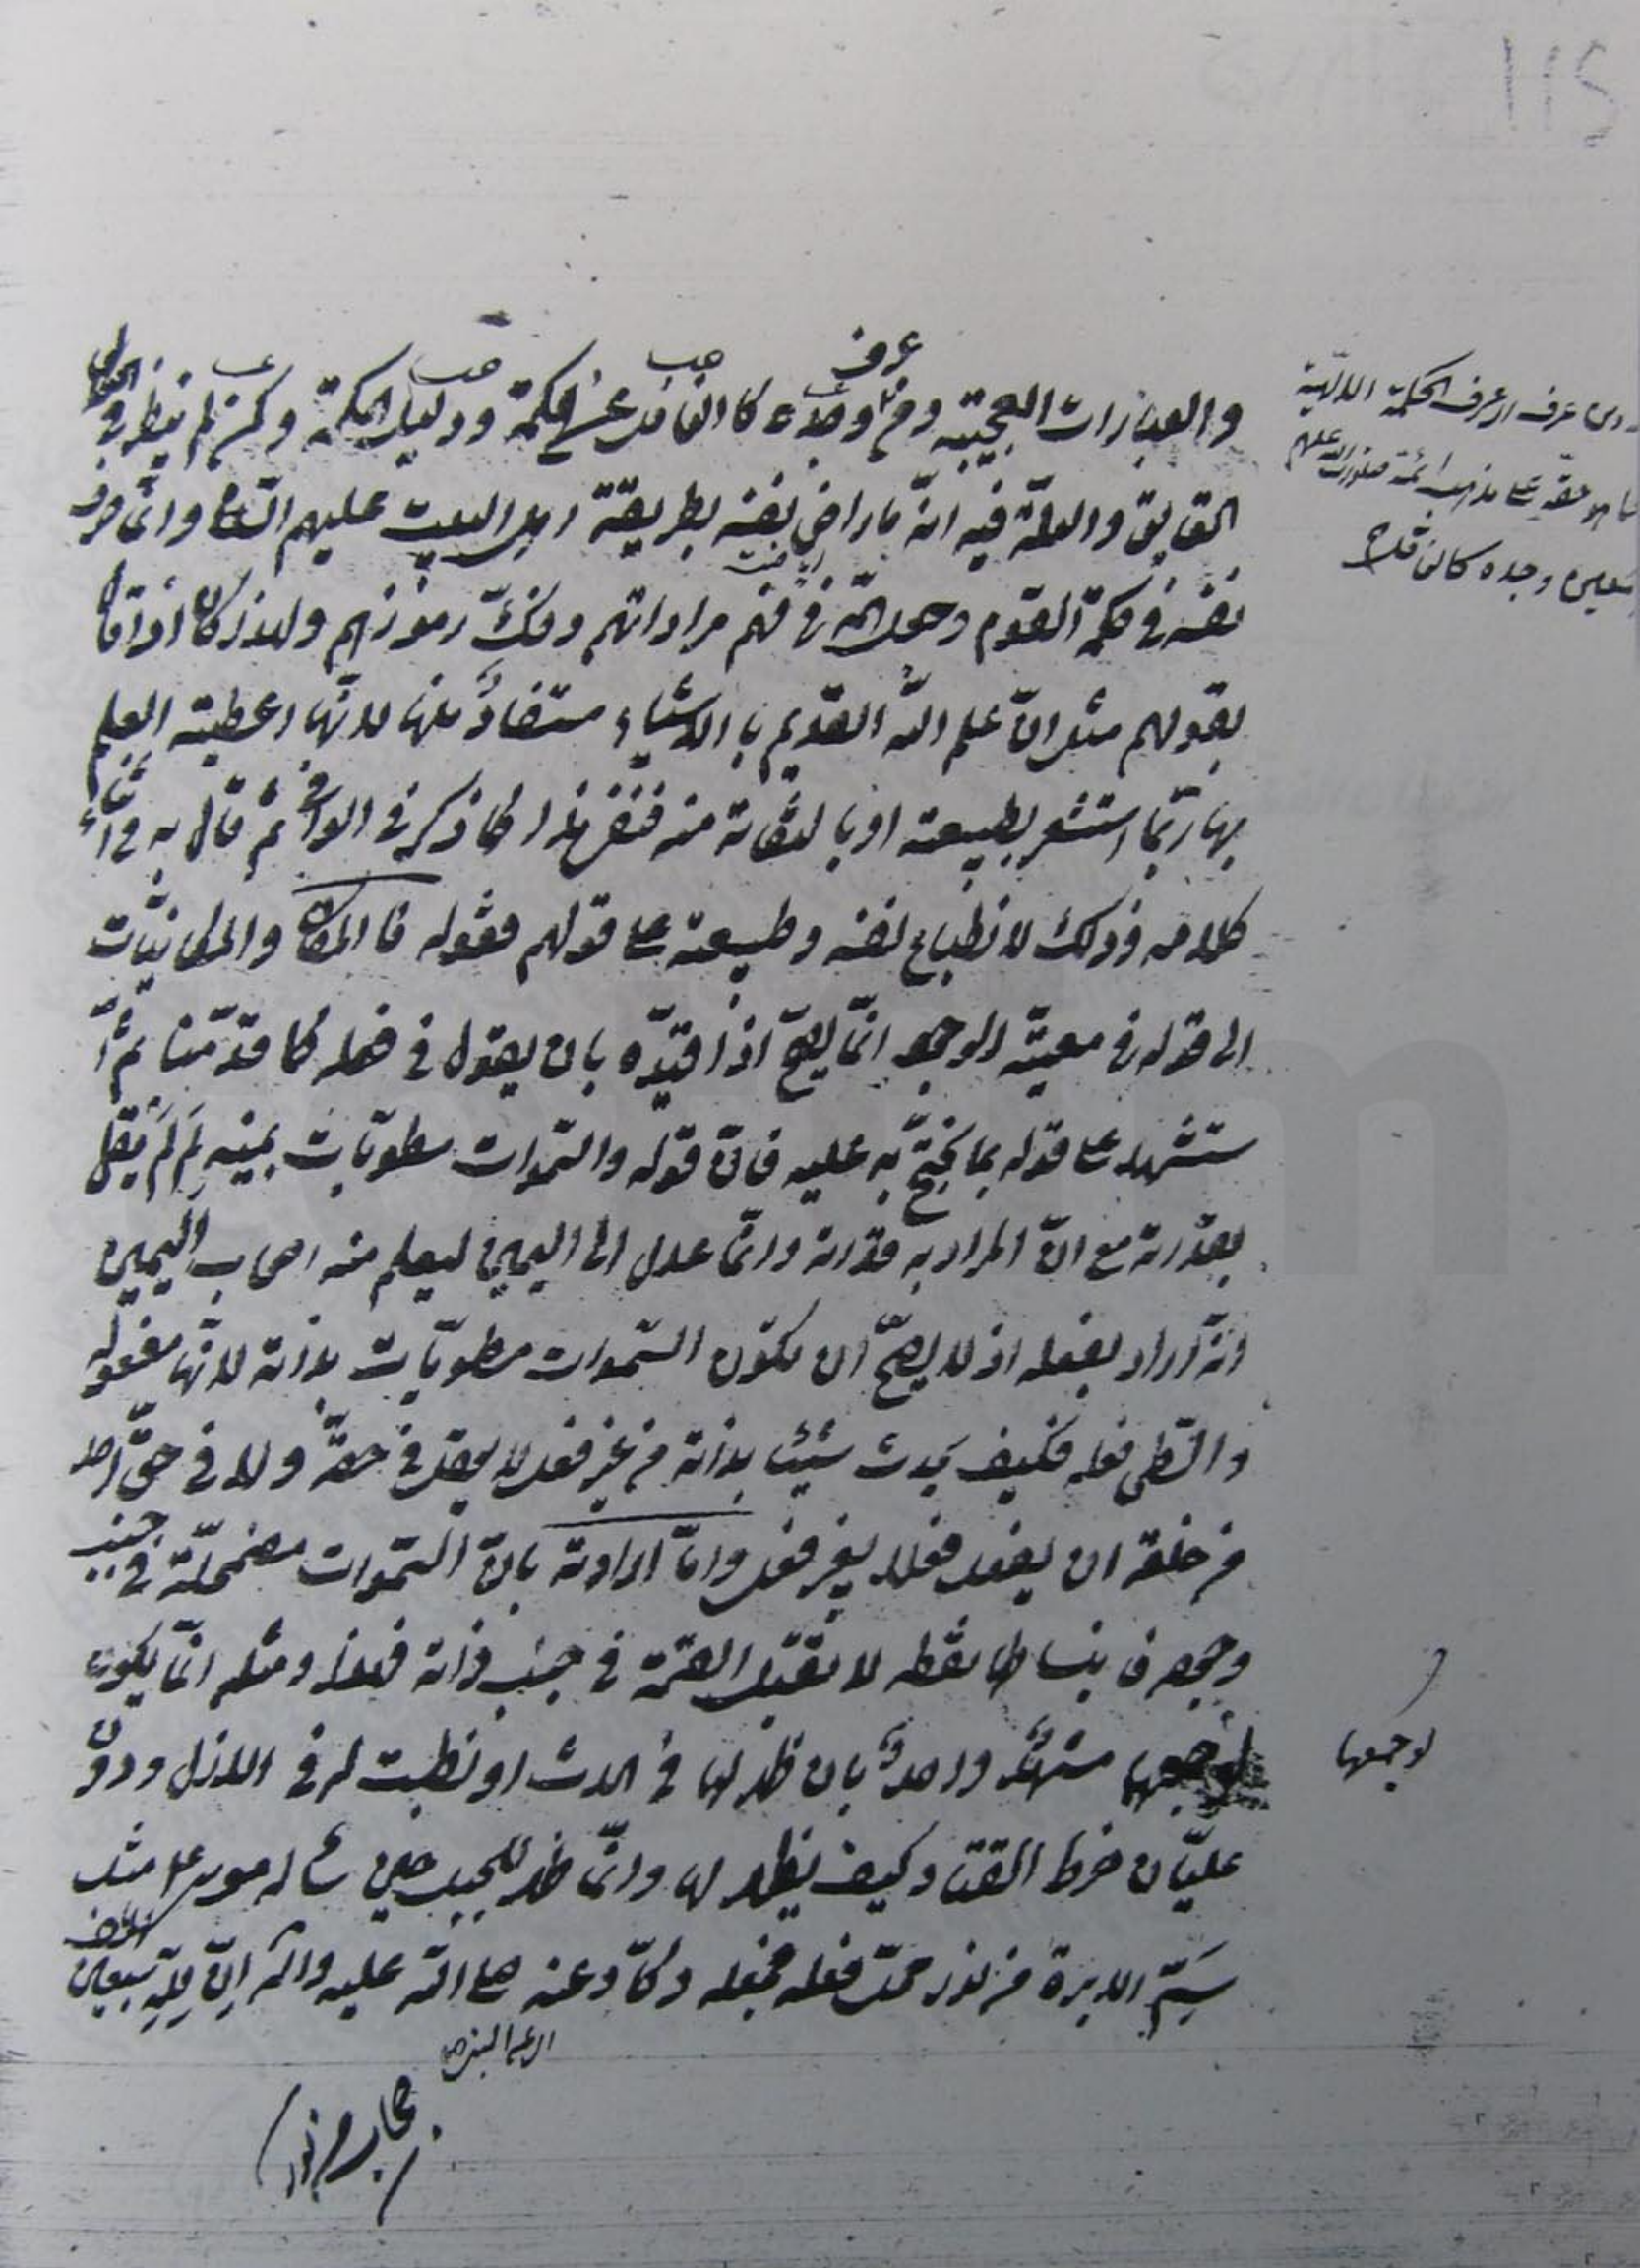 والعبارات العجيبة ومن عرف وجده كالغافل عن الحكمة ودليل الحكمة وكمن لم ينظر في
الحقايق والعلة فيه انه ما راض نفسه بطريقة اهل البيت عليهم السلام وانما صرف
نفسه في حكمة القوم وجعل همه في فهم مراداتهم وفك رموزهم ولهذا كان
بقولهم مثل ان علم الله القديم بالاشياء مستفاد منها لانها اعطيته العلم
بها ربما استشعر بطبيعته او بالتفاتة منه فنفر هذا كما ذكر في الوافي ثم قال به في اثناء
كلامه وذلك لانطباع نفسه وطبيعته على قولهم فقوله فالمكان والمكانيات
الى قوله في معية الوجود انما يصح اذا قيده بان يقول في فعله كما قدمنا ثم ا
ستشهد على قوله بما يحتج به عليه فان قوله والسموات مطويات بيمينه لم لم يقل
بقدرته مع ان المراد به قدرته وانما عدل الى اليمين ليعلم منه اصحاب اليمين
انه اراد بفعله اذ لا يصح ان تكون السموات مطويات بذاته لانها مفعوله
والطي فعله فكيف يحدث شيئا بذاته من غير فعل لا يعقل في حقه ولا في حق احد
من خلقه ان يفعل فعلا بغير فعل واما ارادته بان السموات مضمحلة في جنب
وجهه نقطه لا تقبل القسمة في جنب ذاته فهذا ومثله انما يكون
لو جمعها واحد بان ظهر لها في الحدث او نطبت له في الازل ودون
عليان خرط القتاد وكيف يظهر لها وانما ظهر للجبل حين سأله موسى مثل
سم الابرة من نور محمد فعله فجعله دكا وعنه صلى الله عليه وآله ان لله سبعين
الف
عرف
صب
صب
ومن عرف اي عرف الحكمة الالهية
على مذهب ائمة صلوات الله عليهم
وجده كالغافل
لو جمعها
115